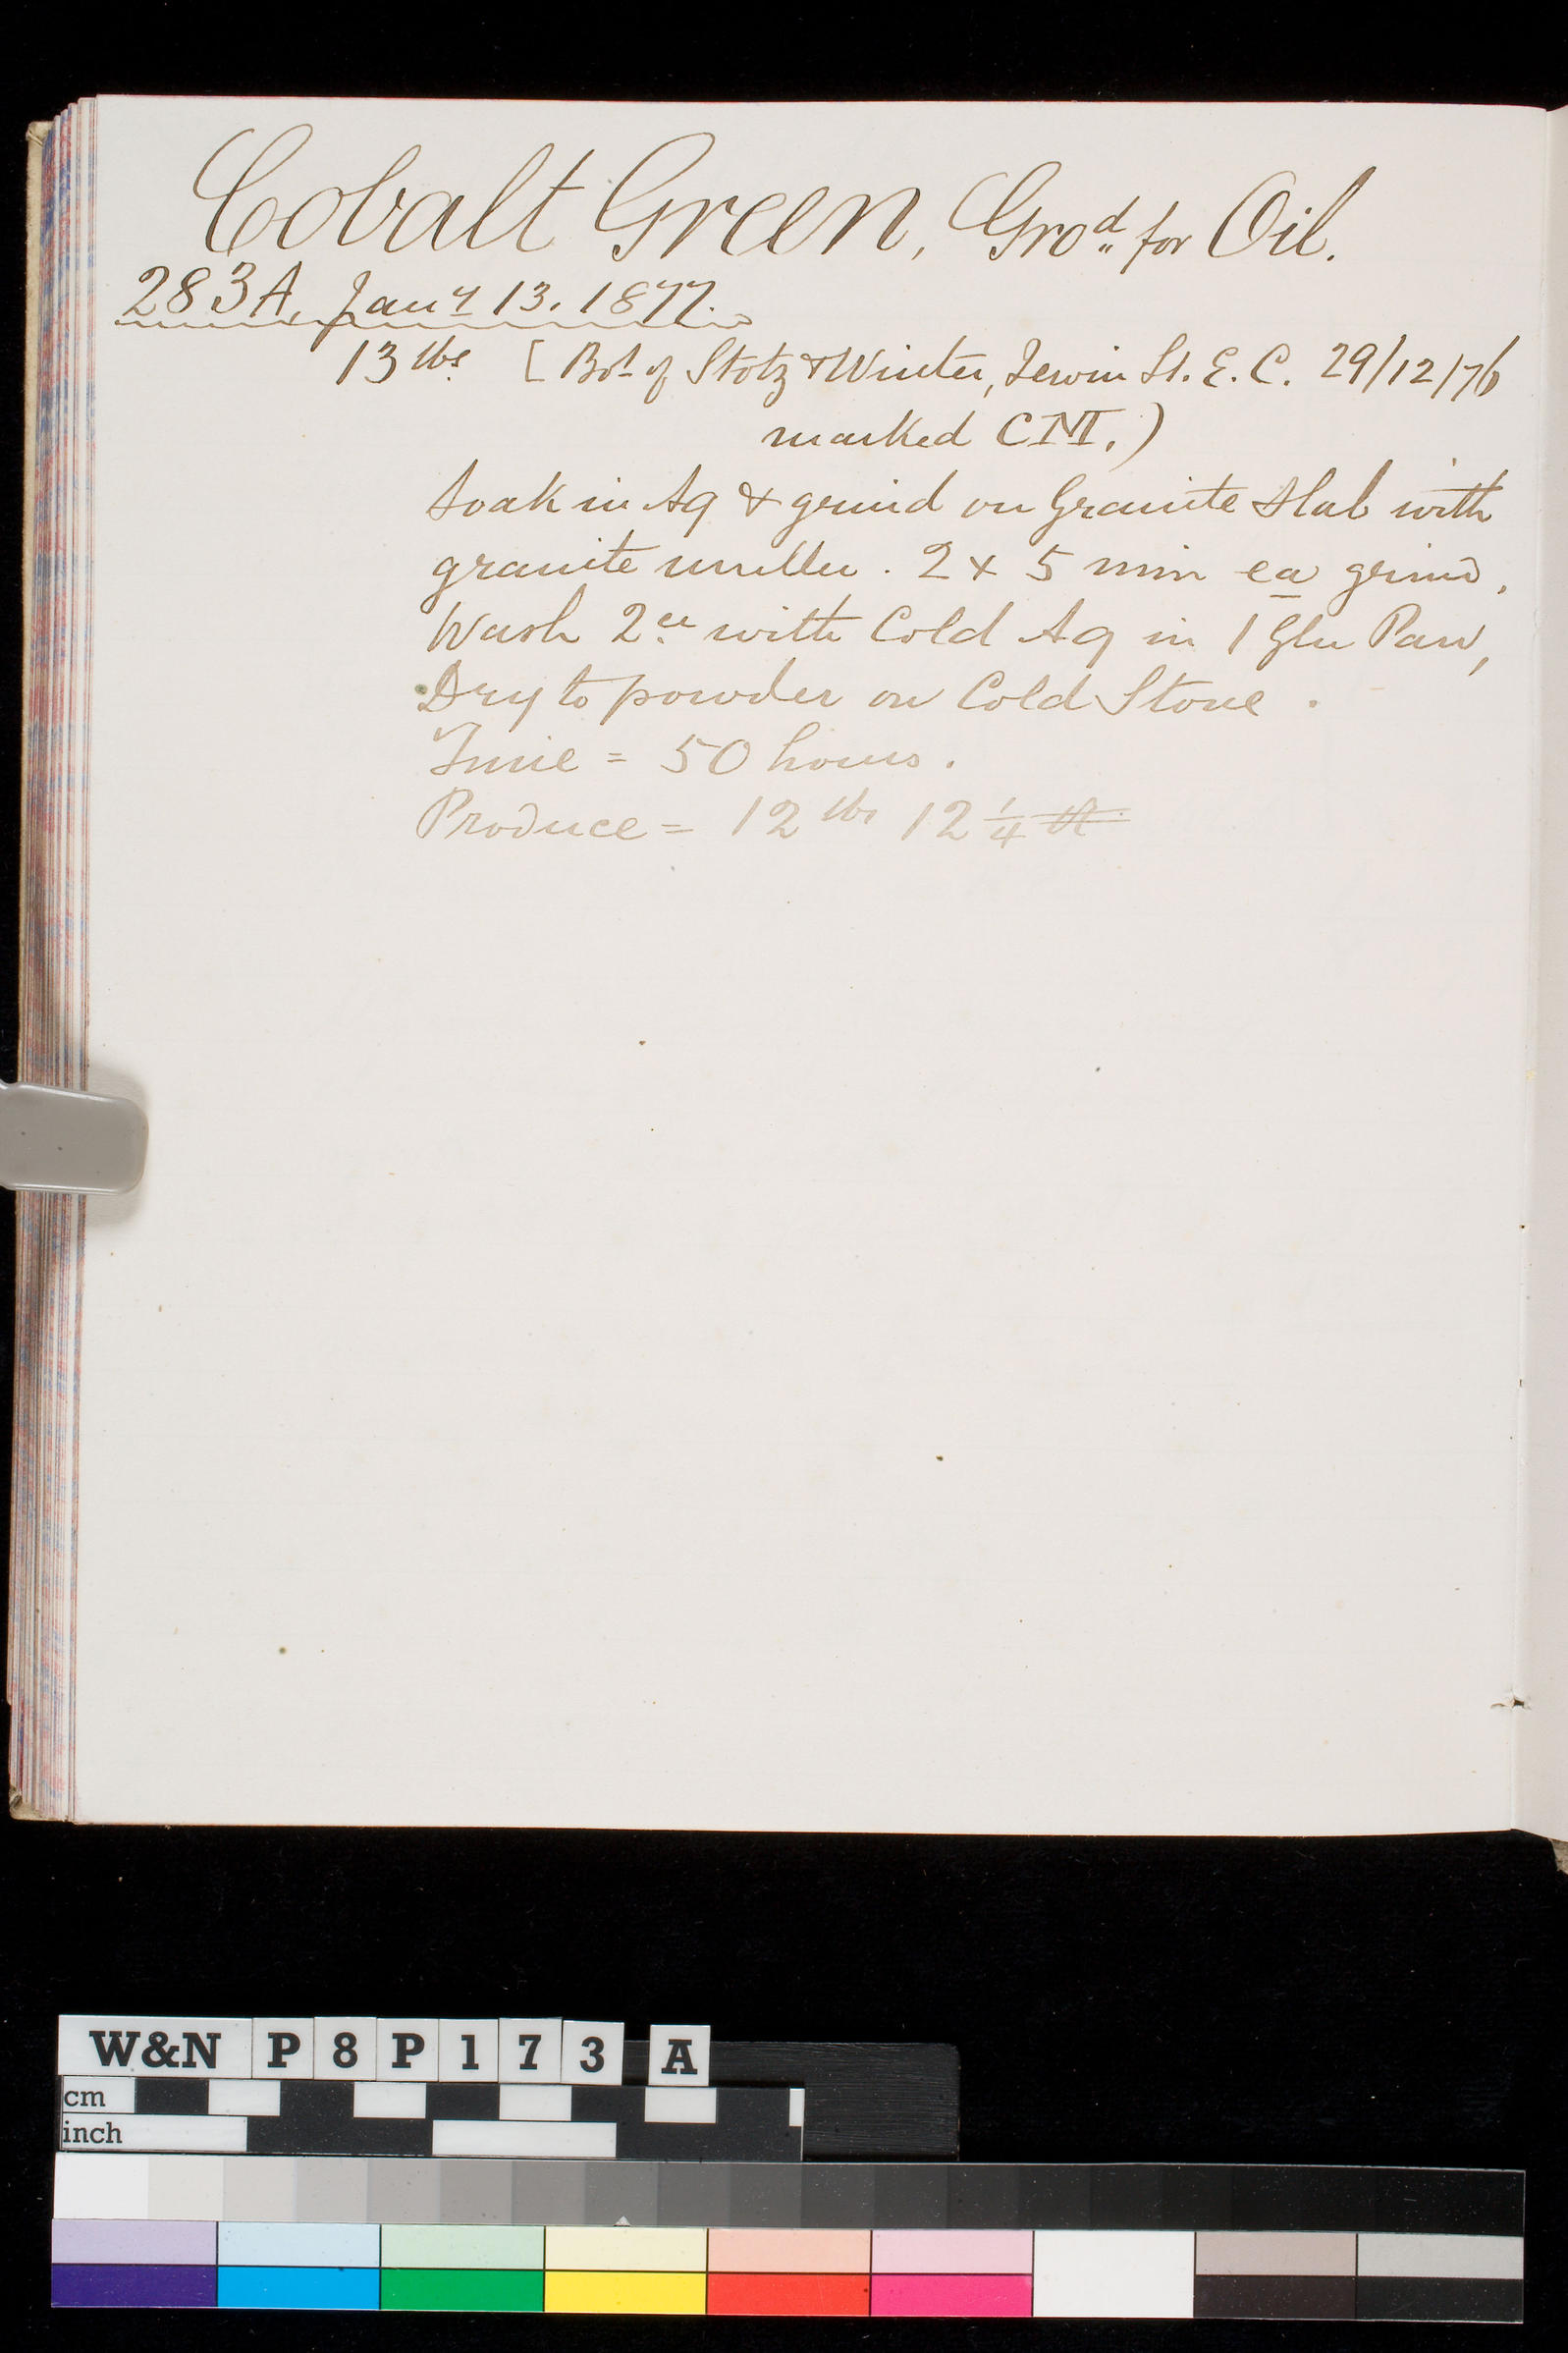 Cobalt Green, Gro.d for Oil.
283A. Jany 13. 1877.
13 lbs [Bot of Stotz & Winter, Jewin St. E. C. 29/12/76
marked CNI.)
Soak in Aq & grind on Granite Slab with
granite muller. 2 x 5 min ea grind.
Wash 2ce with Cold Aq in 1 Glu Pan,
Dry to powder on Cold Stove.
Time = 50 hours.
Produce = 12 lbs 12 1/4
W&N P8P173 A
cm
inch